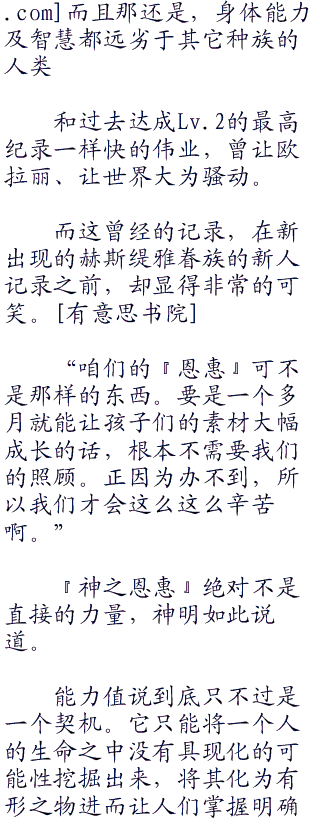 .com]而且那还是，身体能力
及智慧都远劣于其它种族的
人类
和过去达成Lv.2的最高
纪录一样快的伟业，曾让欧
拉丽、让世界大为骚动。
而这曾经的记录，在新
出现的赫斯缇雅眷族的新人
记录之前，却显得非常的可
笑。[有意思书院]
“咱们的『恩惠』可不
是那样的东西。要是一个多
月就能让孩子们的素材大幅
成长的话，根本不需要我们
的照顾。正因为办不到，所
以我们才会这么这么辛苦
啊。”
『神之恩惠』绝对不是
直接的力量，神明如此说
道。
能力值说到底只不过是
一个契机。它只能将一个人
的生命之中没有具现化的可
能性挖掘出来，将其化为有
形之物进而让人们掌握明确